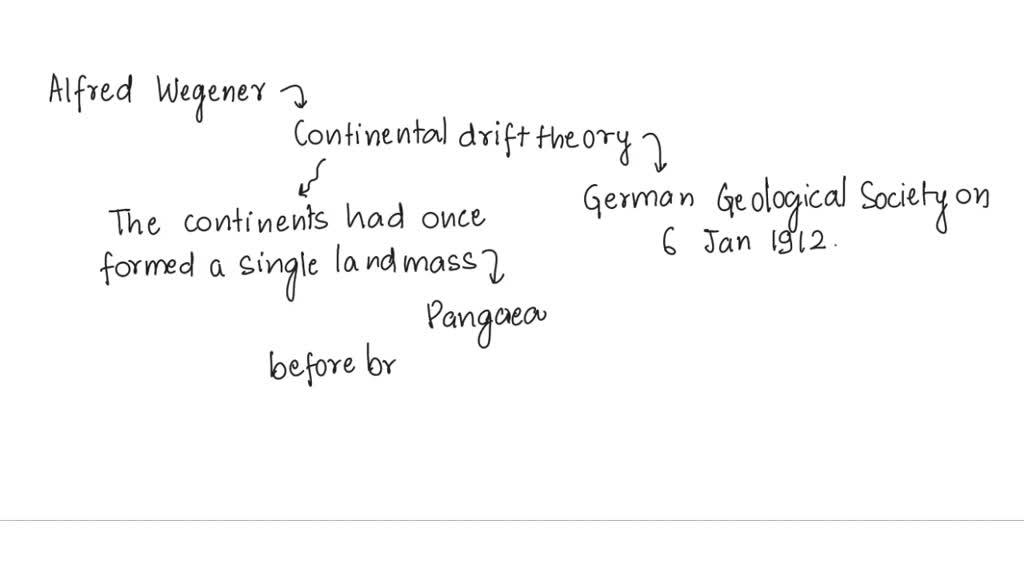 Alfred Wegener
Continental drift theory
German Geological Society on
6 Jan 1912.
The continents had once
formed a single landmass
Pangaea
before br